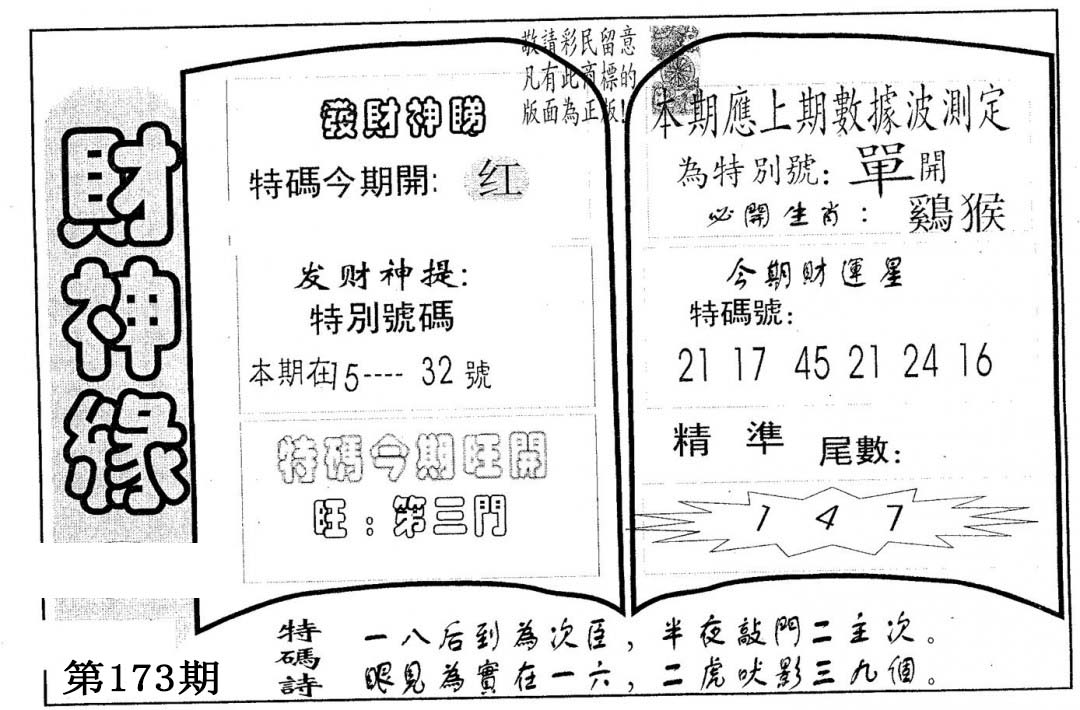 敬請彩民留意
凡有此商標的
版面為正版!
財神緣
發財神睇
特碼今期開: 红
发财神提:
特別號碼
本期在15---- 32號
特碼今期旺開
旺:第三門
本期應上期數據波測定
為特別號: 單開
必開生肖: 鷄猴
今期財運星
特碼號:
21 17 45 21 24 16
精準 尾數:
1 4 7
特碼詩
一八后到為次臣,半夜敲門二主次。
眼見為實在一六,二虎吠影三九個。
第173期